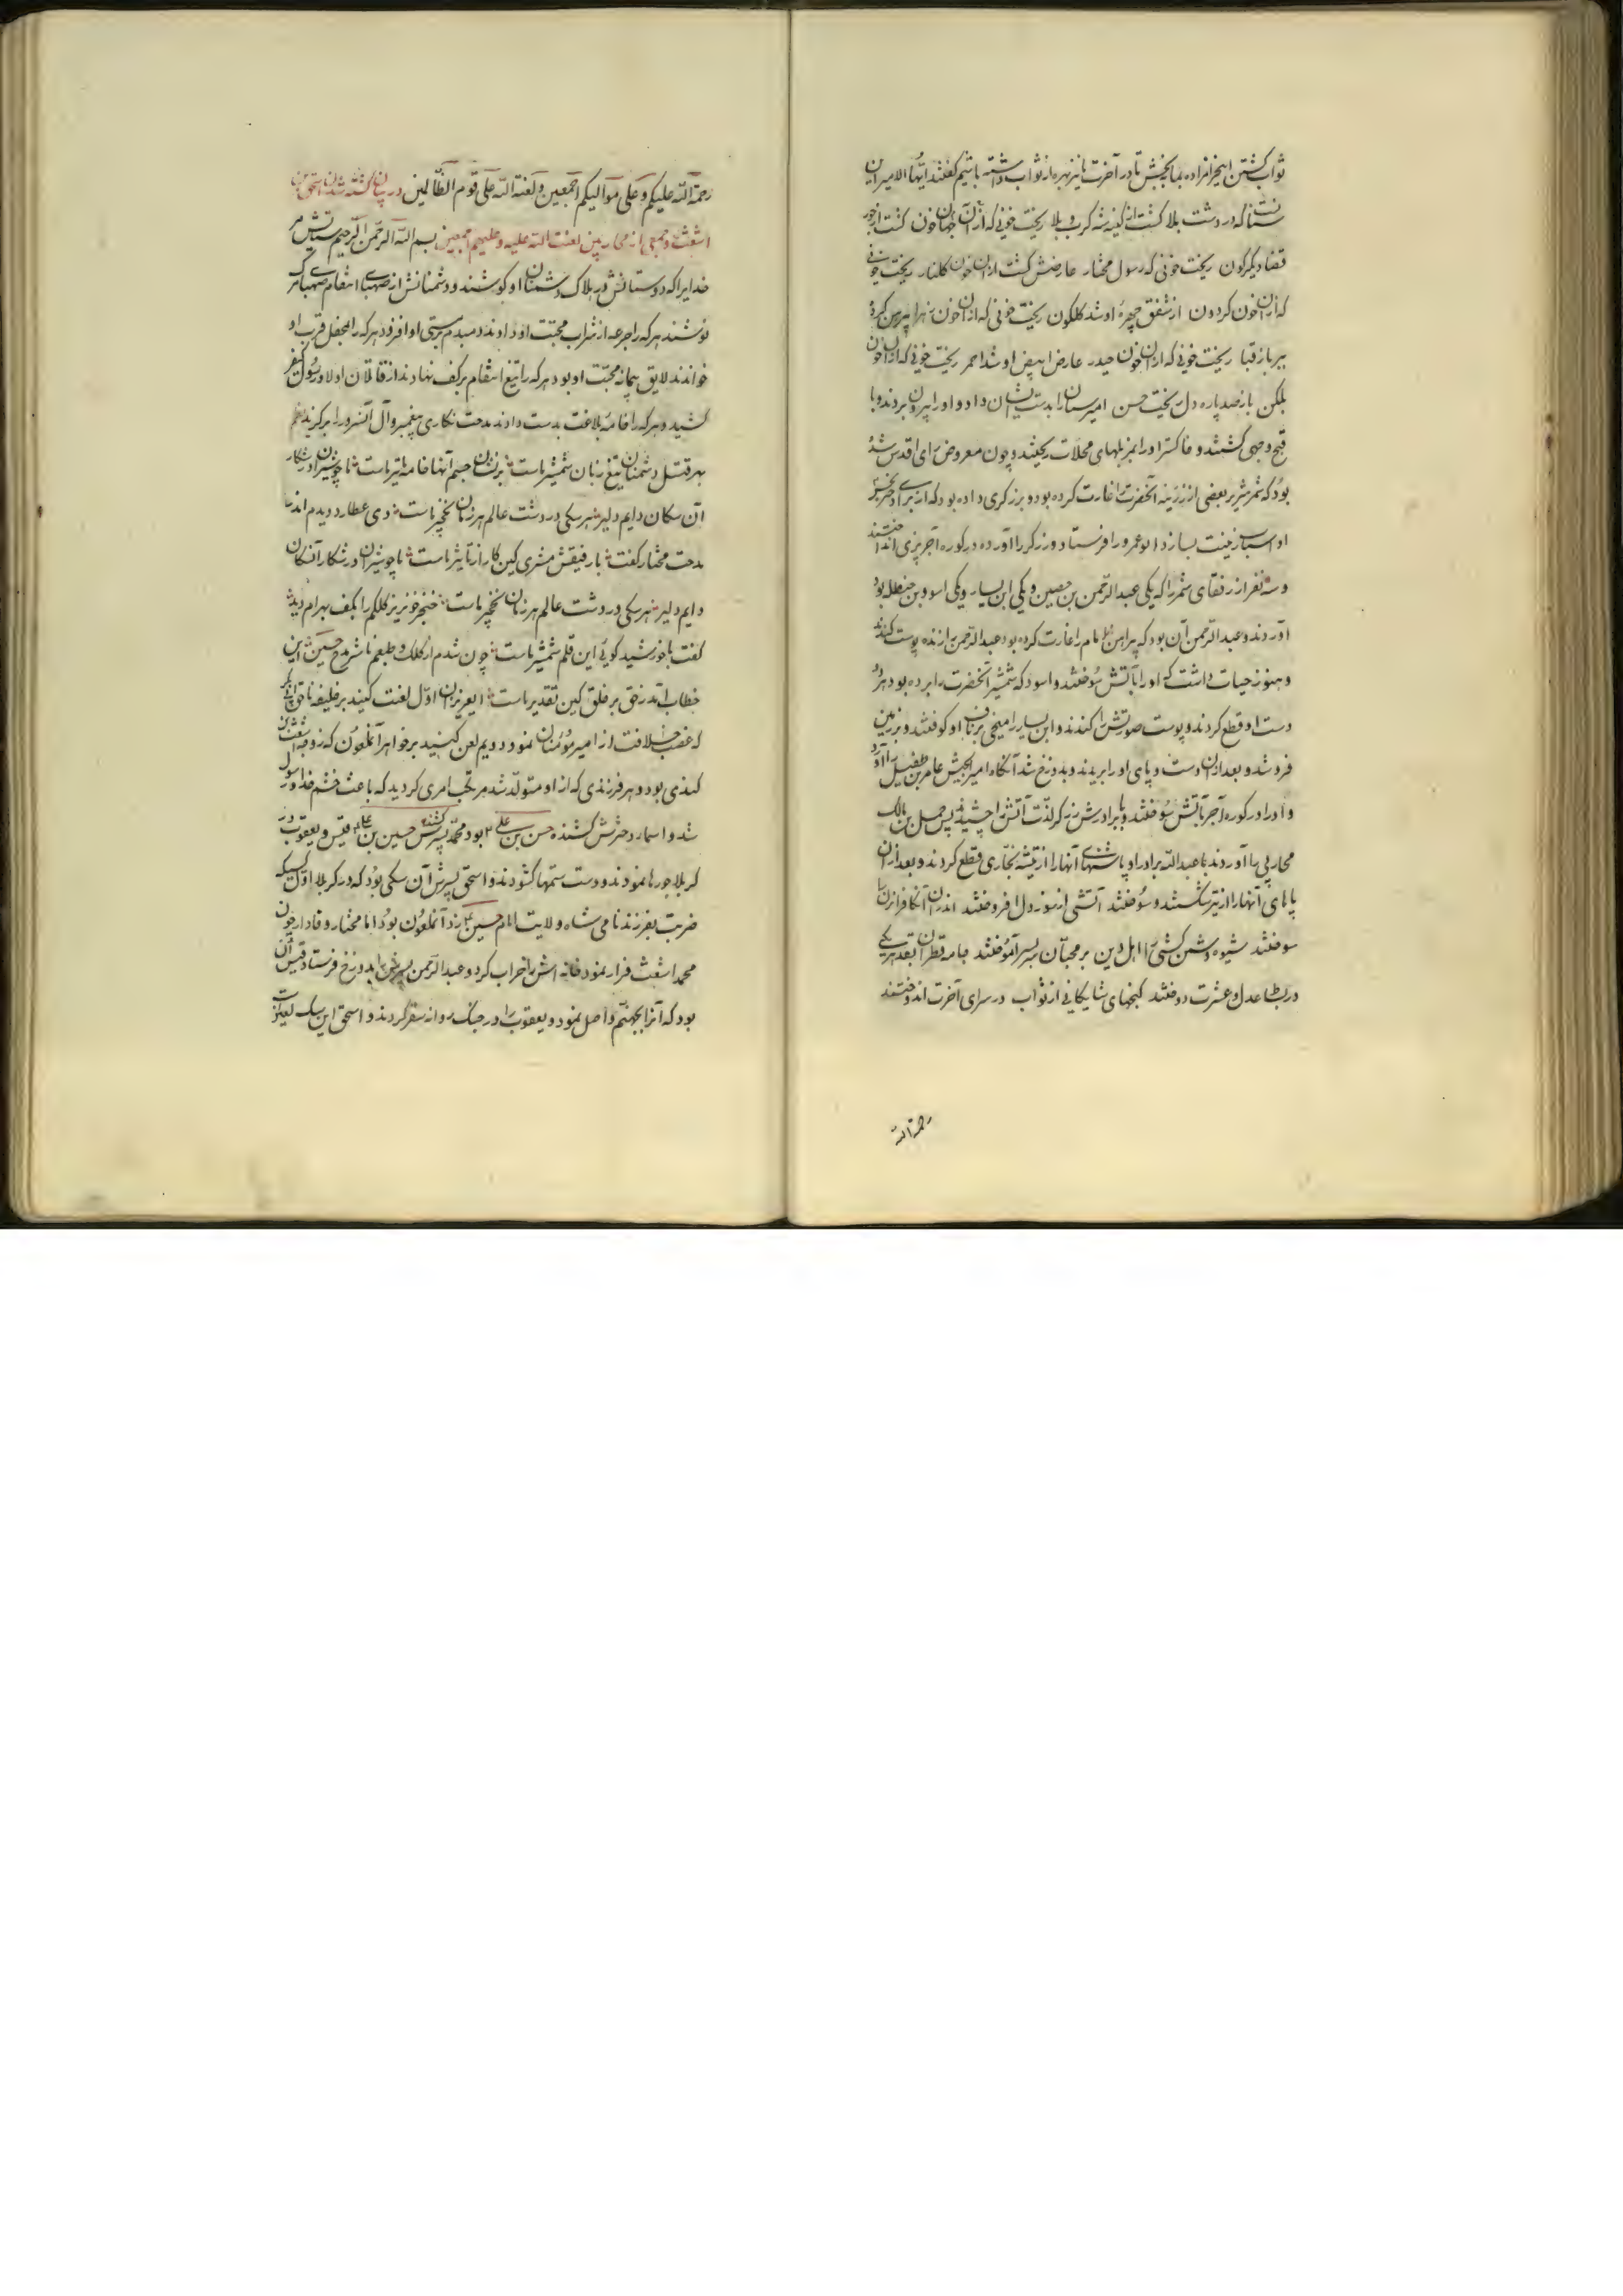 ثواب کشتن اینحرامزاده بما بخش تا در آخرت ما نیز بهره از ثواب داشته باشیم گفتند ایها الامیر این
که در دشت بلا کشت از کینه شه کرب و بلا ریخت خونی که از آن جهان خون گشت از جور
قضا دیگرگون ریخت خونی که رسول مختار عارضش گشت از آن خون گلنار ریخت خونی
که از آن خون گردون از شفق چهرهٔ او شد گلگون ریخت خونی که از آن خون زهرا پیرهن کرده
ببر باز قبا ریخت خونی که از آن خون حیدر عارض ابیض او شد احمر ریخت خونی که از آن خون
باز صد پاره دل ریخت حسن امیر سنان را بدست ایشان داد و او را بیرون بردند و با
قبح وجهی کشتند و خاکستر او را بمزبلهای محلات ریختند و چون معروض رای اقدس شده
بود که شمر شریر بعضی از زرینه آنحضرت را غارت کرده بود و بزرگری داده بود که از برای دخترش
اسباب زینت بسازد ابو عمرو را فرستاد و زرگر را آورده در کوره آجرپزی انداختند
و سه نفر از رفقای شمر را که یکی عبدالرحمن بن حصین و یکی ابن یسار و یکی اسود بن حنظله بود
آوردند و عبدالرحمن آن بود که پیراهن امام را غارت کرده بود عبدالرحمن را زنده پوست کندند
و هنوز حیات داشت که او را بآتش سوختند و اسود که شمشیر آنحضرت را برده بود هر دو
دست او قطع کردند و پوست صورتش را کندند و ابن یسار را میخی بر زبان او کوفتند و بزمین
فروشد و بعد از آن دست و پای او را بریدند و بدوزخ شد آنگاه امیر الجیش عامر بن طفیل را آورد
و او را در کوره آجر بآتش سوختند و با برادرش زید که لذت آتش را چشید پس حمل بن مالک
محاربی را آوردند با عبدالله برادر او پاشنهای آنها را از تیشه نجاری قطع کردند و بعد از آن
پاهای آنها را از تبر شکستند و سوختند آتشی از سوز دل افروختند اندران آن کافران را
سوختند شیوه دشمن کشی را اهل دین بر محبان بسر آموختند جامه قطران بقد هر یکی
در بساط عدل و عشرت دوختند گنجهای شایگانی از ثواب در سرای آخرت اندوختند
رحمة الله
رحمة الله علیکم و علی موالیکم اجمعین و لعنة الله علی قوم الظالمین در بیان کشته شدن اسحق بن
اشعث و جمعی از محاربین لعنت الله علیه و علیهم اجمعین بسم الله الرحمن الرحیم ستایش مر
خدایرا که دوستانش در هلاک دشمنان او کوشند و دشمنانش از صهبای انتقام
نوشند هر که را جرعه از شراب محبت او دادند دمبدم مستی او افزود هر که را بمحفل قرب او
خواندند لایق پیمانه محبت او بود هر که را تیغ انتقام بر کف نهادند از قاتلان اولاد رسول
کشید و هر که را خامهٔ بلاغت بدست دادند مدحت نگاری پیغمبر و آل آنسرور را برگزید
بهر قتل دشمنان تیغ زبان شمشیر ماست بر نشان جسم آنها خامه ما تیر ماست تا چو شیران در شکار
آن سگان دایم دلیر هر سگی در دشت عالم هر زمان نخچیر ماست دی عطارد دیدم اندر
مدحت مختار گفت با رفیقش مشتری کین کار از تاثیر ماست تا چو شیران در شکار آن سگان
دایم دلیر هر سگی در دشت عالم هر زمان نخچیر ماست خنجر خونریز کلکم را بکف بهرام دید
گفت با خورشید گوئی این قلم شمشیر ماست چون شدم از کلک و طبعم ناشر مدح حسین این
خطاب آمد ز حق بر خلق کین تقدیر ماست ایعزیزان اول لعنت کنید بر خلیفه ناحق ابابکر
که غصب خلافت از امیر مؤمنان نمود و دویم لعن کنید بر خواهر آنملعون که زوجه اشعث
کندی بود و هر فرزندی که از او متولد شد مرتکب امری گردید که باعث خشم خدا و رسول
شد و اسماء دخترش کشنده حسن بن علی بود محمد پسرش کشنده حسین بن علی قیس و یعقوب در
کربلا جورها نمودند و دست ستمها گشودند و اسحق پسرش آن سگی بود که در کربلا اول کسیکه
ضربت بفرزند نامی شاه ولایت امام حسین زد آنملعون بود اما مختار وفادار چون
محمد اشعث فرار نمود خانه اش را خراب کرد و عبدالرحمن پسرش را بدوزخ فرستاد قیس آن
بود که آنرا بجهنم واصل نمود و یعقوب را در جنگ روانه سقر کردند و اسحق این سگ لعین